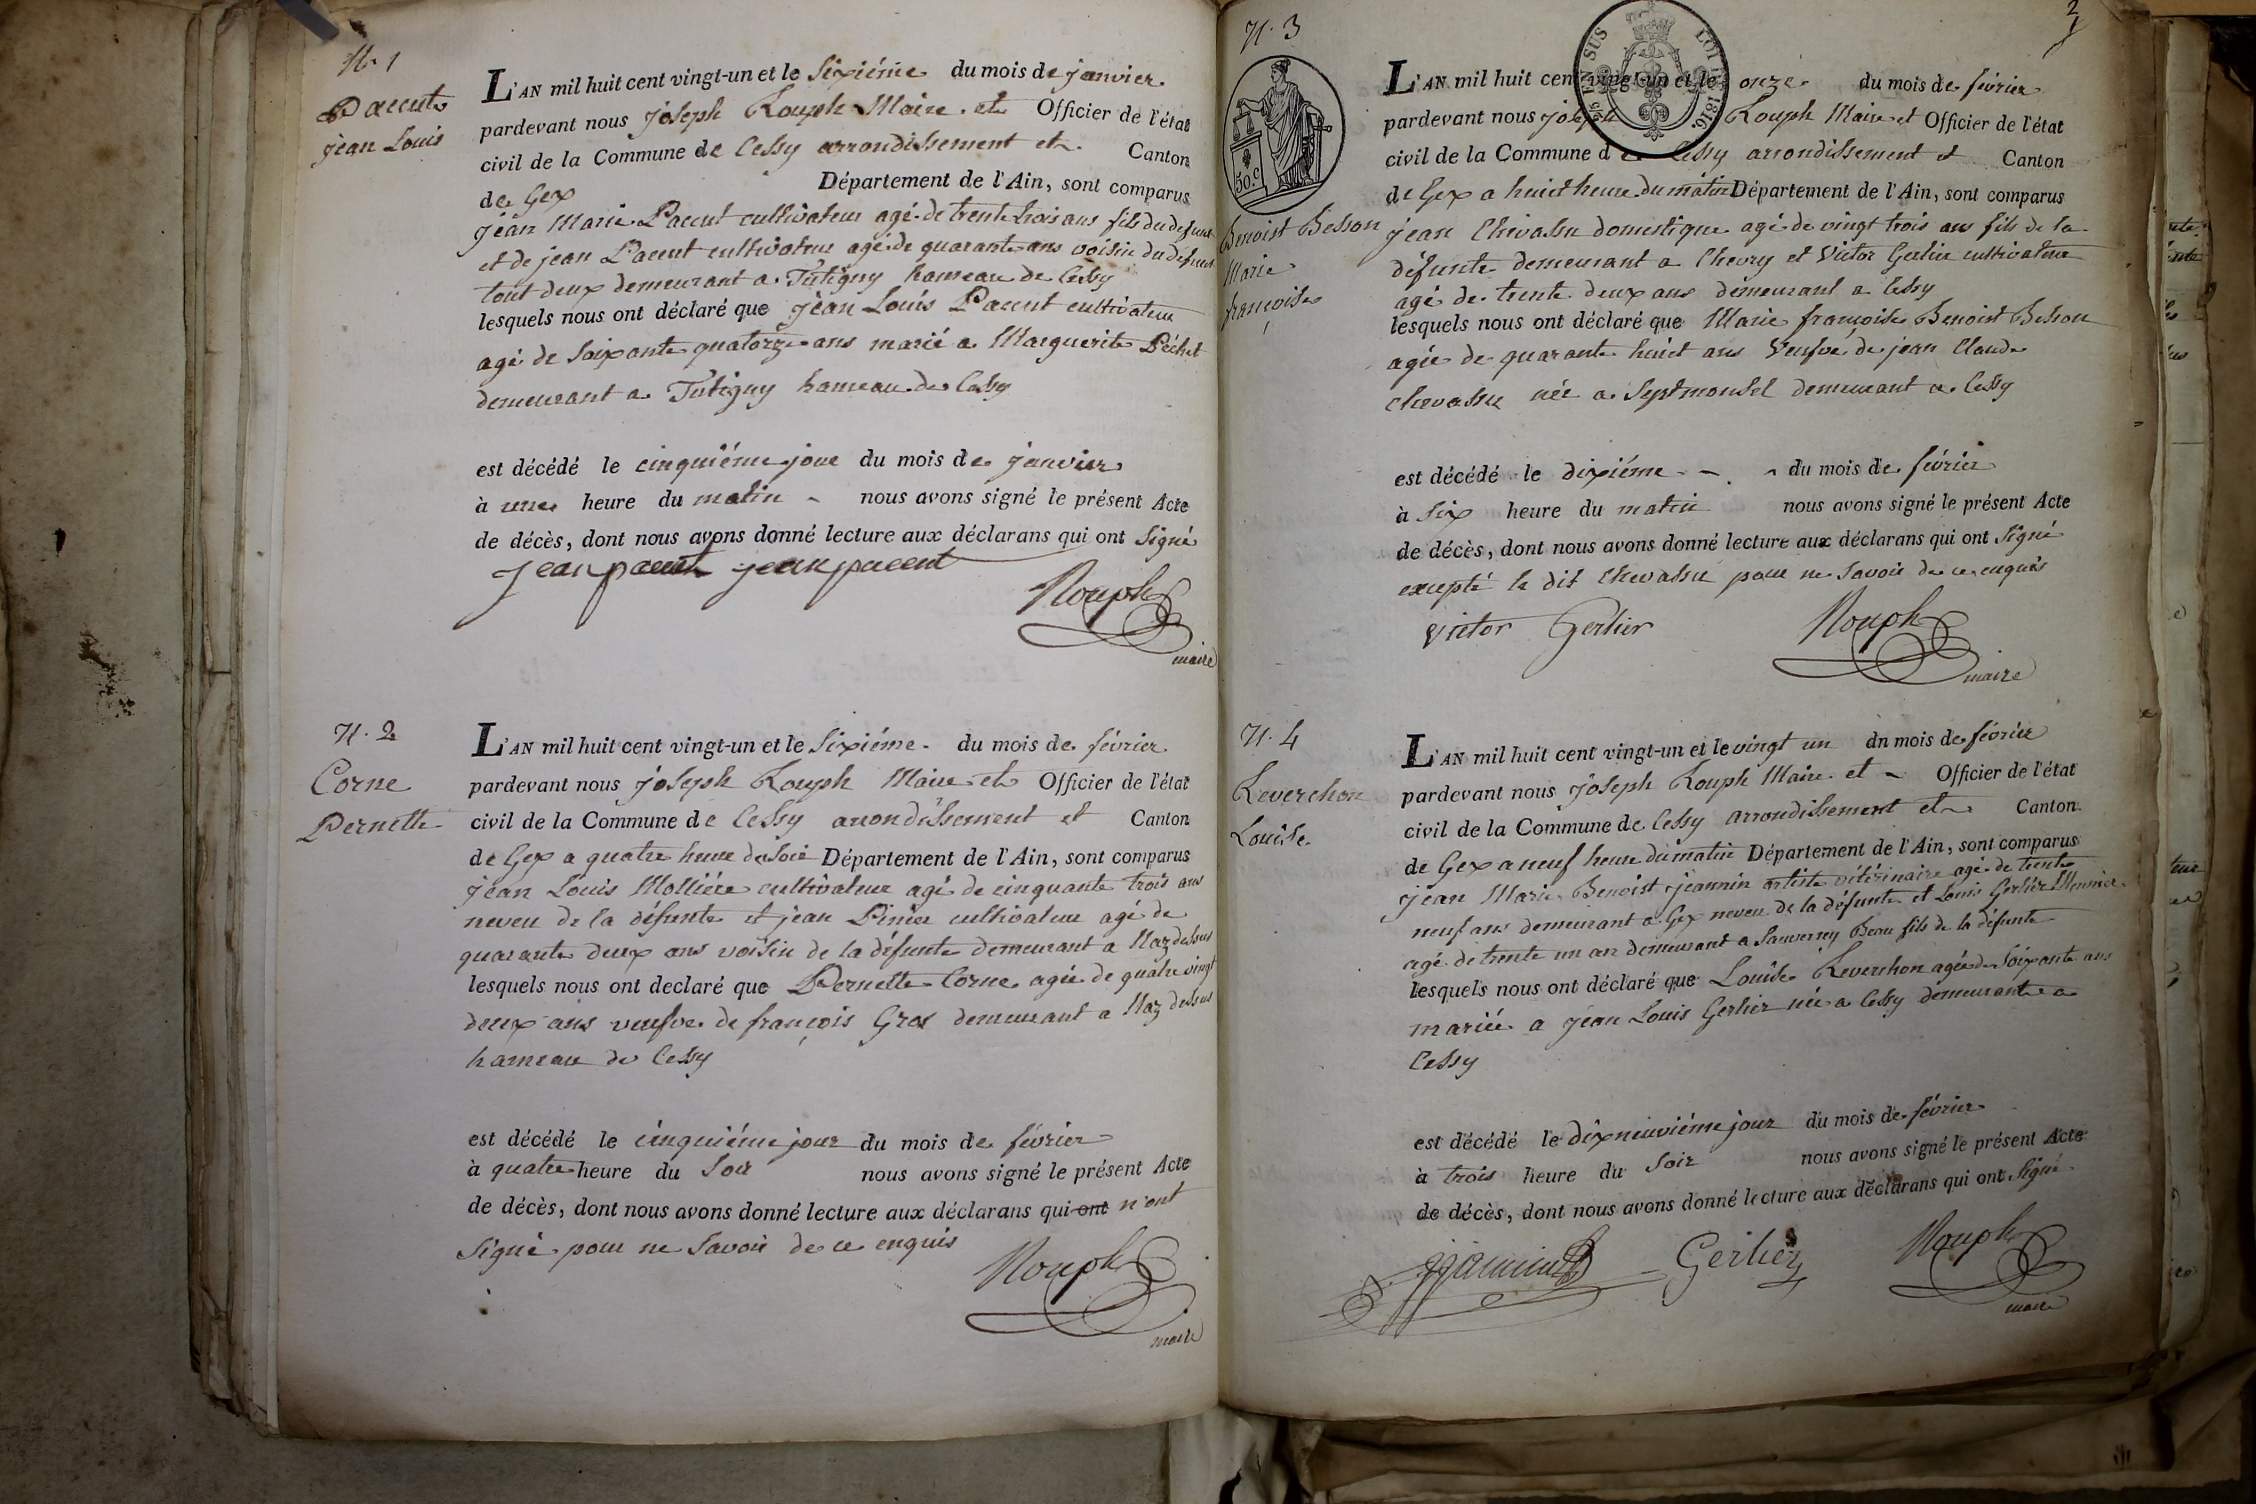 N. 1
Pacut
jean Louis
L'AN mil huit cent vingt-un et le Sixiéme du mois de janvier
pardevant nous joseph Rouph Maire et Officier de l'état
civil de la Commune de Cessy arrondissement et Canton
de Gex Département de l'Ain, sont comparus
jean Marie Pacut cultivateur agé de trente trois ans fils du défunt
et de jean Pacut cultivateur agé de quarante ans voisin du défunt
tout deux demeurant a Tutigny hameau de Cessy
lesquels nous ont déclaré que jéan Louis Pacut cultivateur
agé de Soixante quatorze ans marié a Marguerite Péchet
demeurant a Tutigny hameau de Cessy
est décédé le cinquiéme jour du mois de janvier
à une heure du matin nous avons signé le présent Acte
de décès, dont nous avons donné lecture aux déclarans qui ont Signé
jean pacut jean pacut
Rouph
maire
N. 2
Corne
Pernette
L'AN mil huit cent vingt-un et le Sixiéme du mois de février
pardevant nous joseph Rouph Maire et Officier de l'état
civil de la Commune de Cessy arrondissement et Canton
de Gex a quatre heure du Soir Département de l'Ain, sont comparus
jéan Louis Molliére cultivateur agé de cinquante trois ans
neveu de la défunte et jean Pinier cultivateur agé de
quarante deux ans voisin de la défunte demeurant a Naz dessus
lesquels nous ont declaré que Pernette Corne agée de quatre vingt
deux ans veufve de françois Gros demeurant a Naz dessus
hameau de Cessy
est décédé le cinquiéme jour du mois de février
à quatre heure du Soir nous avons signé le présent Acte
de décès, dont nous avons donné lecture aux déclarans qui ont n'ont
Signé pour ne Savoir de ce enquis
Rouph
maire
3
N. 3
EN SUS LOI 1816.
50. c
Benoist Besson
Marie
françoise
L'AN mil huit cent vingt-un et le onze du mois de février
pardevant nous joseph Rouph Maire et Officier de l'état
civil de la Commune de Cessy arrondissement et Canton
de Gex a huict heure du matin Département de l'Ain, sont comparus
jean Chevassu domestique agé de vingt trois ans fils de la
défunte demeurant a Chevry et Victor Gerlier cultivateur
agé de trente deux ans démeurant a Cessy
lesquels nous ont déclaré que Marie françoise Benoist Besson
agée de quarante huict ans Veufve de jean Claude
Chevassu née a Septmonsel demeurant a Cessy
est décédé le dixiéme du mois de février
à Six heure du matin nous avons signé le présent Acte
de décès, dont nous avons donné lecture aux déclarans qui ont Signé
excepté le dit Chevassu pour ne Savoir de ce enquis
victor Gerlier
Rouph
maire
N. 4
Reverchon
Louise
L'AN mil huit cent vingt-un et le vingt un du mois de février
pardevant nous joseph Rouph Maire et Officier de l'état
civil de la Commune de Cessy arrondissement et Canton
de Gex a neuf heure du matin Département de l'Ain, sont comparus
jean Marie Benoist jeannin artiste vétérinaire agé de trente
neuf ans demeurant a Gex neveu de la défunte et Louis Gerlier Meunier
agé de trente un an demeurant a Sauverny Beau fils de la défunte
lesquels nous ont déclaré que Louise Reverchon agée de Soixante ans
mariée a jéan Louis Gerlier née a Cessy demeurante a
Cessy
est décédé le dixneuviéme jour du mois de février
à trois heure du Soir nous avons signé le présent Acte
de décès, dont nous avons donné lecture aux déclarans qui ont Signé
Gerlier
Rouph
maire